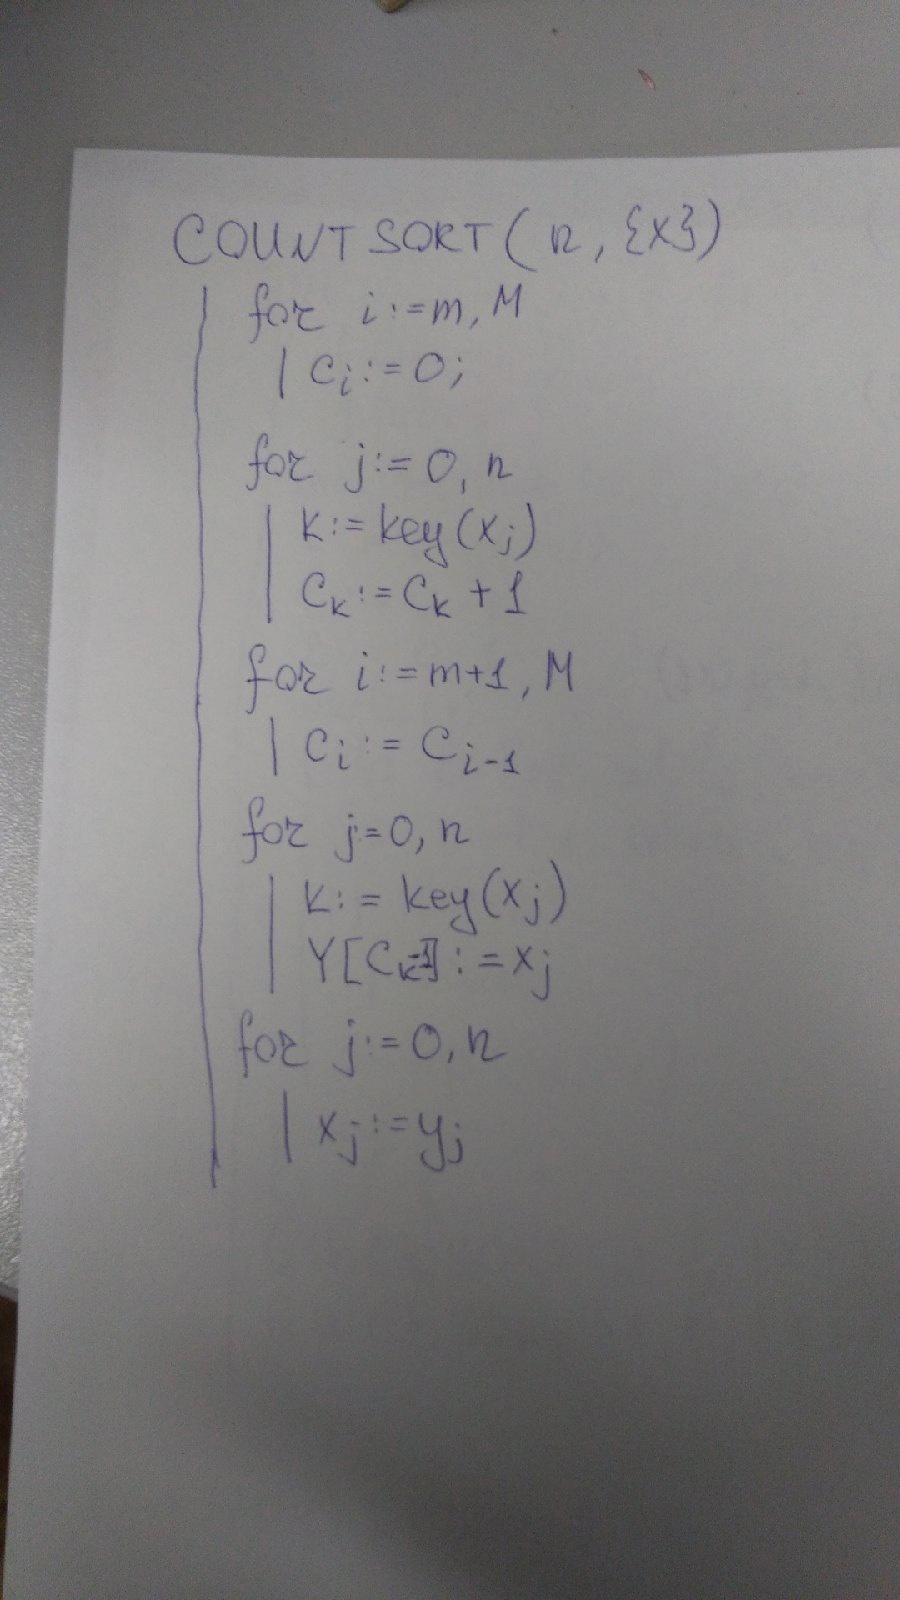 COUNT SORT (n, {x})
for i:=m, M
| Ci:=0;
for j:=0, n
| k:= key(xj)
| Ck:=Ck+1
for i:=m+1, M
| Ci:= Ci-1
for j=0, n
| k:= key(xj)
| Y[Ck-1]:=xj
for j:=0, n
| xj:=yj